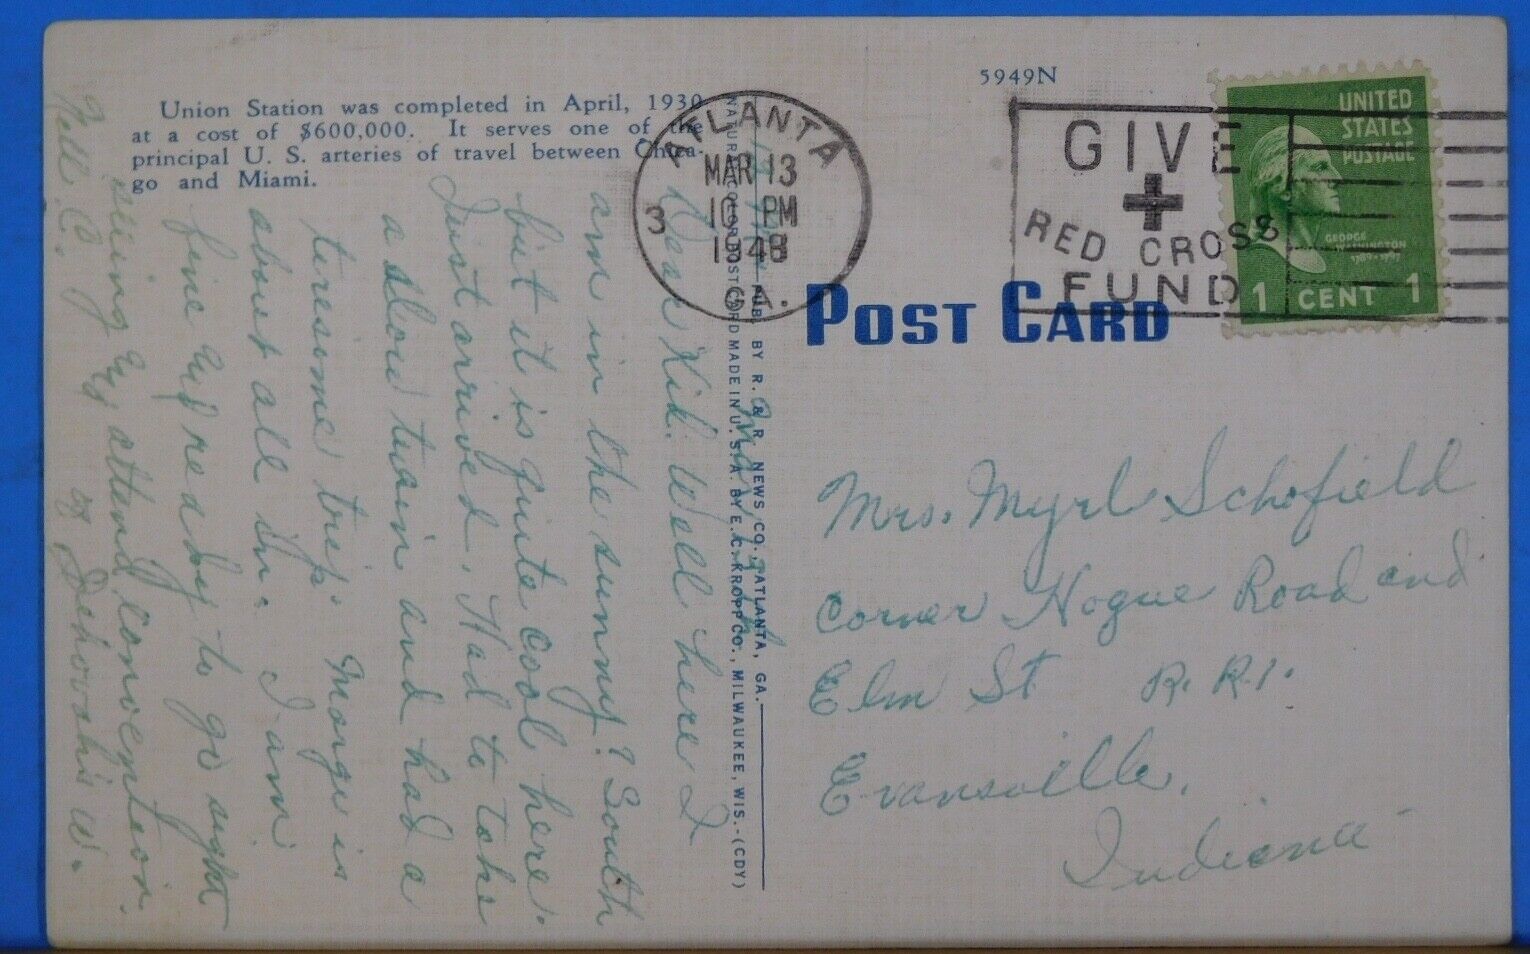 5949N
Union Station was completed in April, 1930
at a cost of $600,000. It serves one of the
principal U. S. arteries of travel between Chica-
go and Miami.
ATLANTA
MAR 13
10 PM
1948
GA.
3
GIVE
RED CROSS
FUND
UNITED
STATES
POSTAGE
GEORGE
WASHINGTON
1789-1797
1 CENT 1
POST CARD
BY R. & R. NEWS CO., ATLANTA, GA.
NATURAL COLOR POST CARD MADE IN U. S. A. BY E. C. KROPP CO., MILWAUKEE, WIS.-(CDY)
Dear Kid. Well here I
am in the sunny? South
but it is quite cool here.
Just arrived. Had to take
a slow train and had a
tiresome trip. Marge is
about all in. I am
fine &
ready to go sight
seeing &
attend convention
of Jehovah's W.
Mrs. Myrl Schofield
Corner Hogue Road and
Elm St R. R. 1.
Evansville,
Indiana